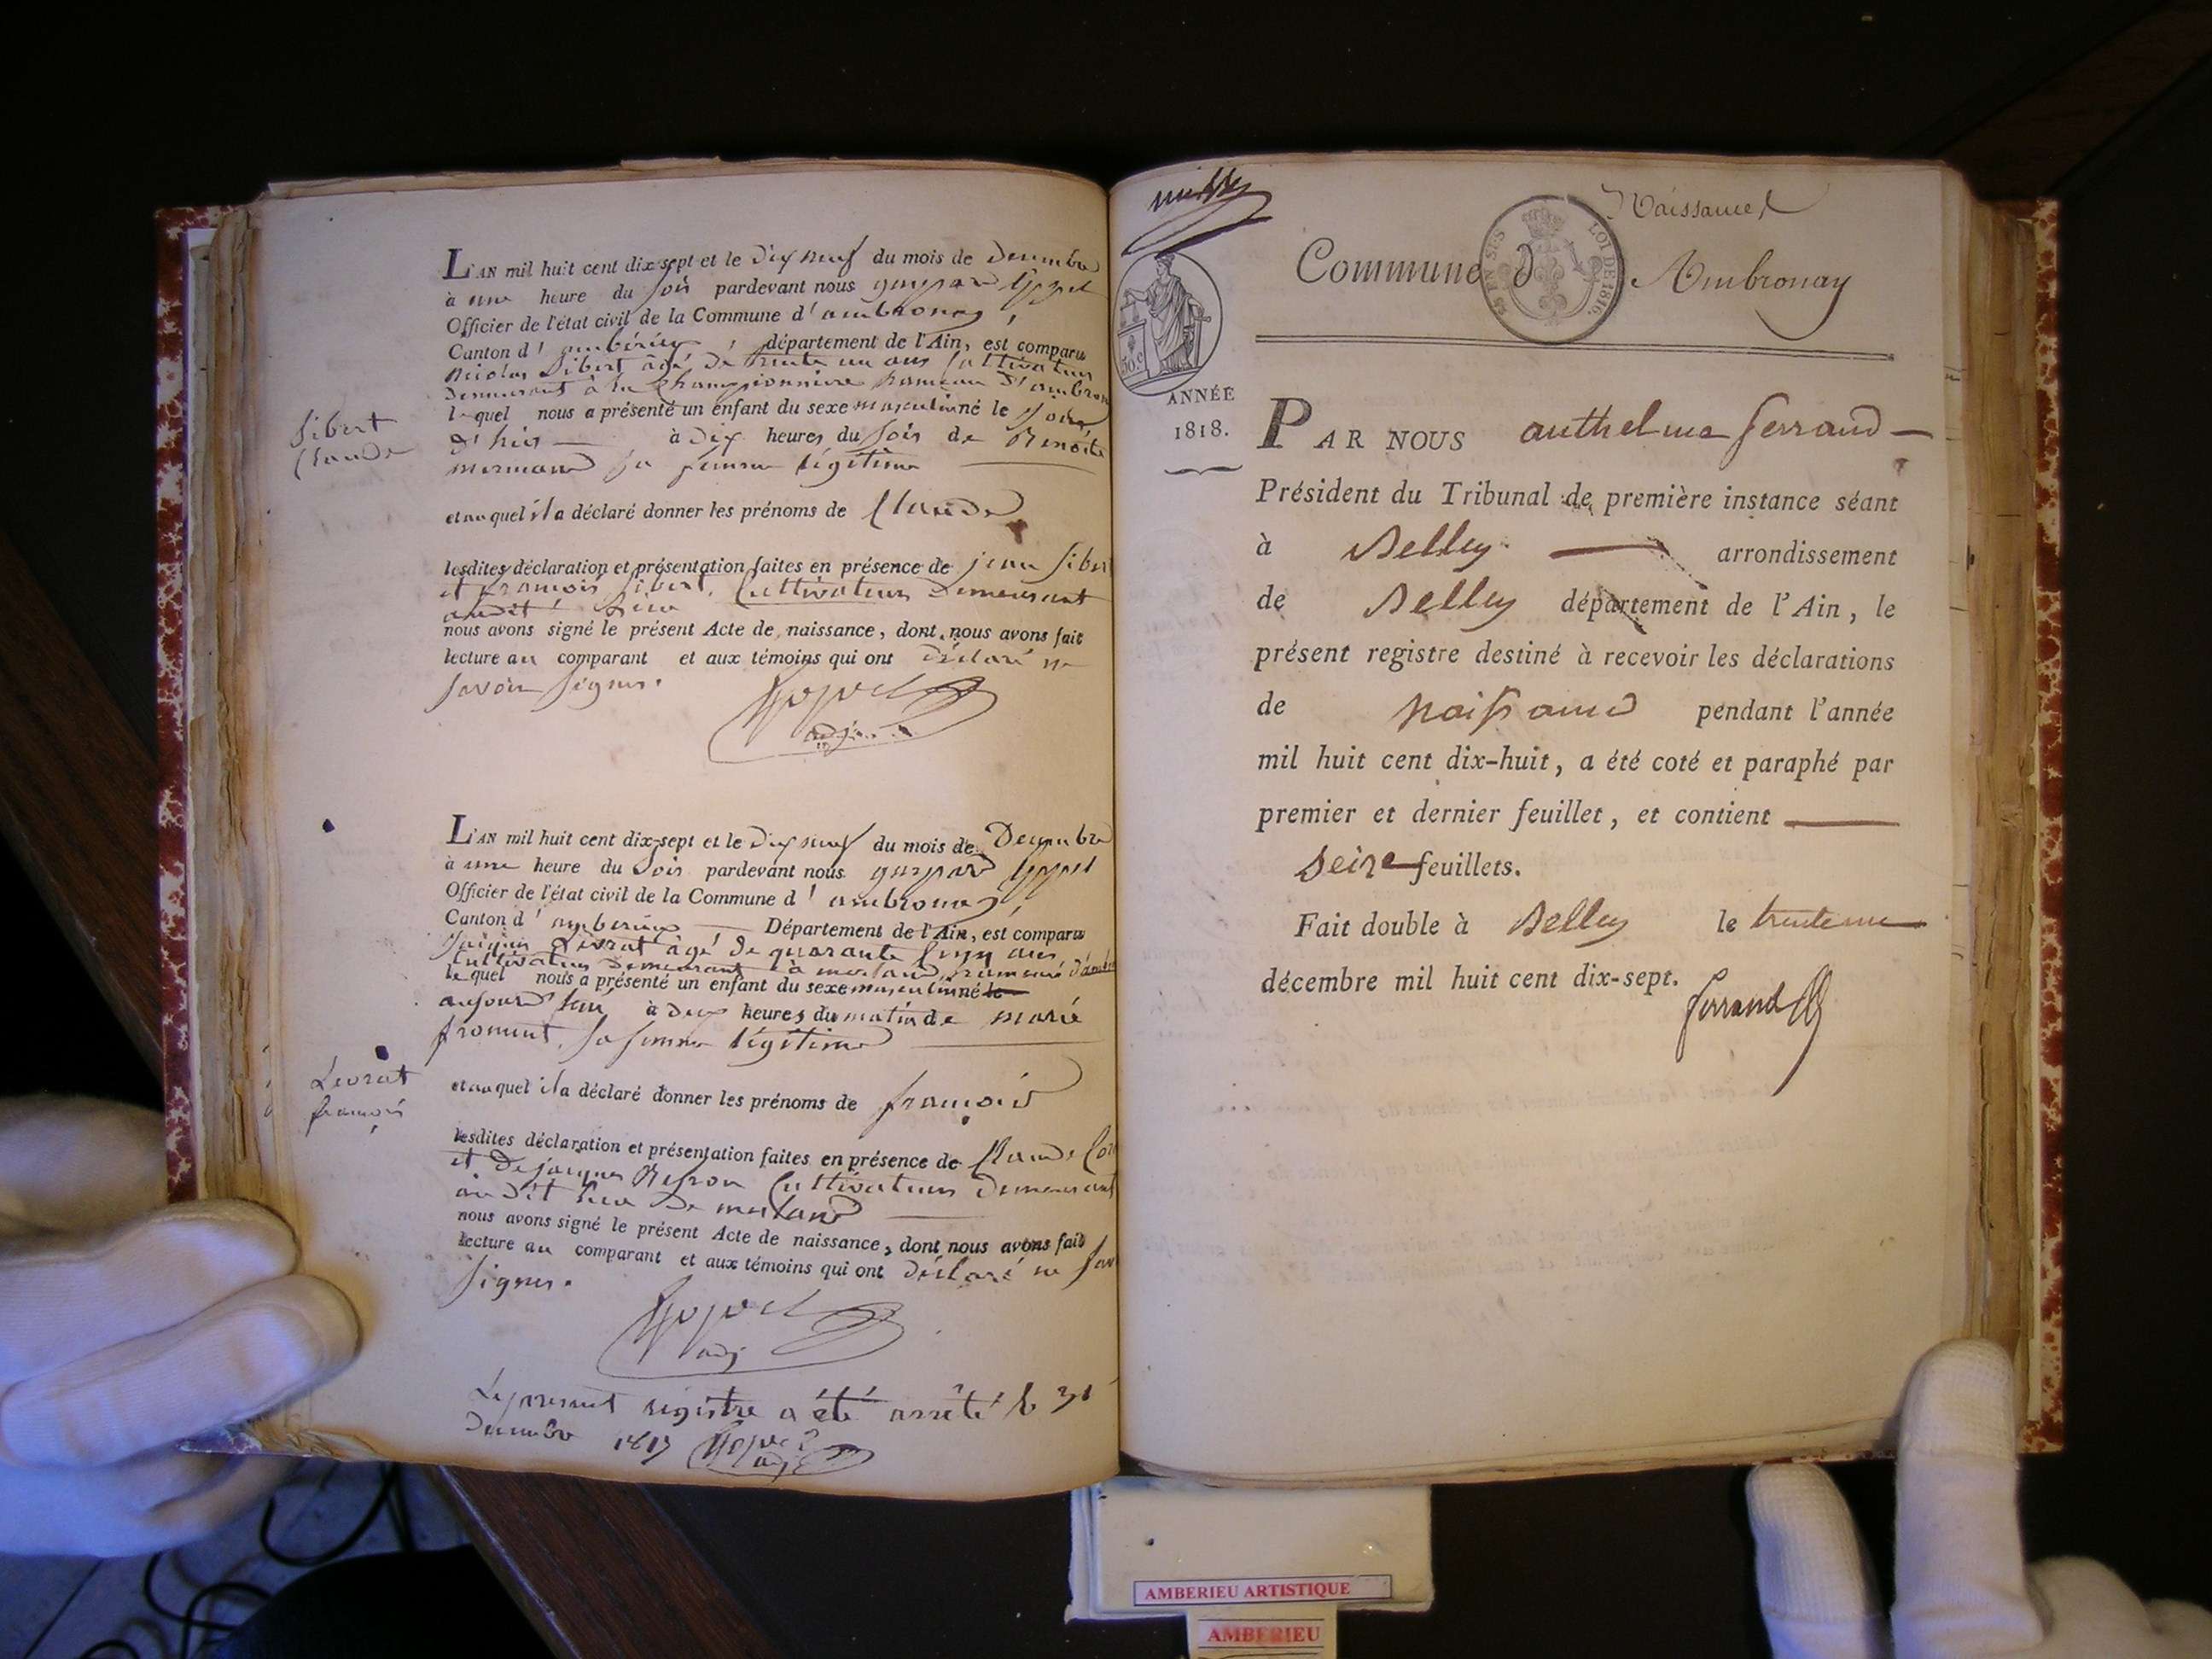 L'AN mil huit cent dix-sept et le dix neuf du mois de décembre
à une heure du soir pardevant nous gaspard
Officier de l'état civil de la Commune d'ambronay,
Canton d'ambérieux, département de l'Ain, est comparu
nicolas Sibert âgé de trente un ans Cultivateur
demeurant à la Championnière hameau d'ambron
lequel nous a présenté un enfant du sexe masculin né le jour
d'hier — à dix heures du soir de Benoite
mermand sa femme légitime
Sibert
Claude
et auquel il a déclaré donner les prénoms de Claude
lesdites déclaration et présentation faites en présence de jean Siber
et françois Sibert, Cultivateurs demeurant
audit lieu
nous avons signé le présent Acte de naissance, dont nous avons fait
lecture au comparant et aux témoins qui ont déclaré ne
savoir signer.
adj.
L'AN mil huit cent dix-sept et le dix neuf du mois de Décembre
à une heure du soir pardevant nous gaspard
Officier de l'état civil de la Commune d'ambronay,
Canton d'ambérieux — Département de l'Ain, est comparu
Jacques Levrat âgé de quarante cinq ans
Cultivateur demeurant à merland, hameau d'amb
lequel nous a présenté un enfant du sexe masculin né le
aujourd'hui à deux heures du matin de marie
froment, sa femme légitime
Levrat
françois
et auquel il a déclaré donner les prénoms de françois
lesdites déclaration et présentation faites en présence de Claude
et de jacques Cultivateurs demeurant
audit lieu de merland
nous avons signé le présent Acte de naissance, dont nous avons fait
lecture au comparant et aux témoins qui ont déclaré ne sav
signer.
adj
Le present registre a été arrêté le 31
Décembre 1817
adj
Naissances
Commune d'Ambronay
LOI DE 1816.
50.c
ANNÉE
1818.
PAR NOUS anthelme ferrand —
Président du Tribunal de première instance séant
à Belley — arrondissement
de Belley département de l'Ain, le
présent registre destiné à recevoir les déclarations
de naissance pendant l'année
mil huit cent dix-huit, a été coté et paraphé par
premier et dernier feuillet, et contient —
seize feuillets.
Fait double à Belley le trente un
décembre mil huit cent dix-sept.
ferrand
AMBERIEU ARTISTIQUE
AMBERIEU